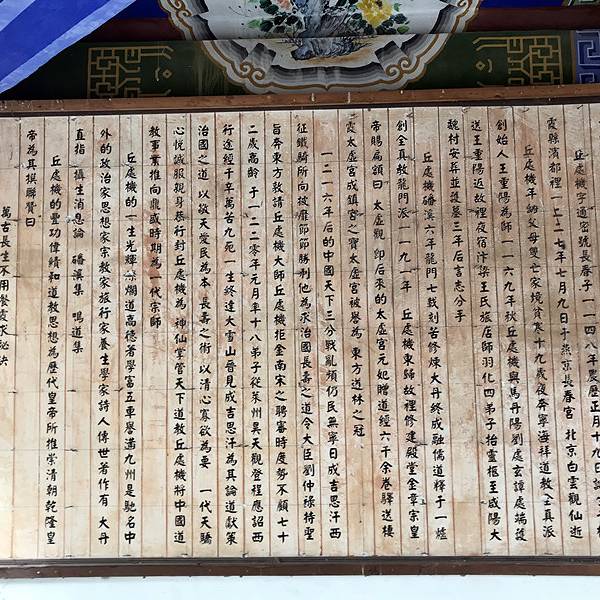 丘處機字通密號長春子一一四八年農歷正月十九日誕
霞縣濱都裡一二二七年七月九日于燕京長春宮 北京白雲觀仙逝
丘處機年幼父母雙亡家境貧寒十九歲夜奔寧海拜道教全真派
創始人王重陽為師一一六九年秋丘處機與馬丹陽劉處玄譚處端護
送王重陽返故裡夜宿汴梁王氏旅店師羽化四弟子抬靈柩至咸陽大
魏村安葬並護墓三年后言志分手
丘處機磻溪六年龍門七載刻苦修煉大丹終成融儒道釋于一爐
創全真教龍門派 一一九一年 丘處機東歸故裡修建殿堂金章宗皇
帝賜扁額曰 太虛觀 即后來的太虛宮元妃贈道經六千余卷驛送棲
霞太虛宮成鎮宮之寶太虛宮被譽為 東方道林之冠
一二一六年后的中國天下三分戰亂頻仍民無寧日成吉思汗西
征鐵騎所向披靡節節勝利他為求治國長壽之道令大臣劉仲祿持聖
旨奔東方敦請丘處機大師丘處機拒金南宋之聘審時度勢不顧七十
二歲高齡 于一二二〇年元月率十八弟子從萊州昊天觀登程應詔西
行途經千辛萬苦九死一生終達大雪山晉見成吉思汗為其論道獻策
治國之道 以敬天愛民為本 長壽之術 以清心寡欲為要 一代天驕
心悅誠服親身恭行封丘處機為 神仙掌管天下道教丘處機將中國道
教事業推向鼎盛時期為一代宗師
丘處機的一生光輝燦爛道高德著學富五車譽滿九州是馳名中
外的政治家思想家宗教家旅行家養生學家詩人傳世著作有 大丹
直指 攝生消息論 磻溪集 鳴道集
丘處機的豐功偉績和道教思想為歷代皇帝所推崇清朝乾隆皇
帝為其撰聯贊曰
萬古長生不用餐霞求秘訣